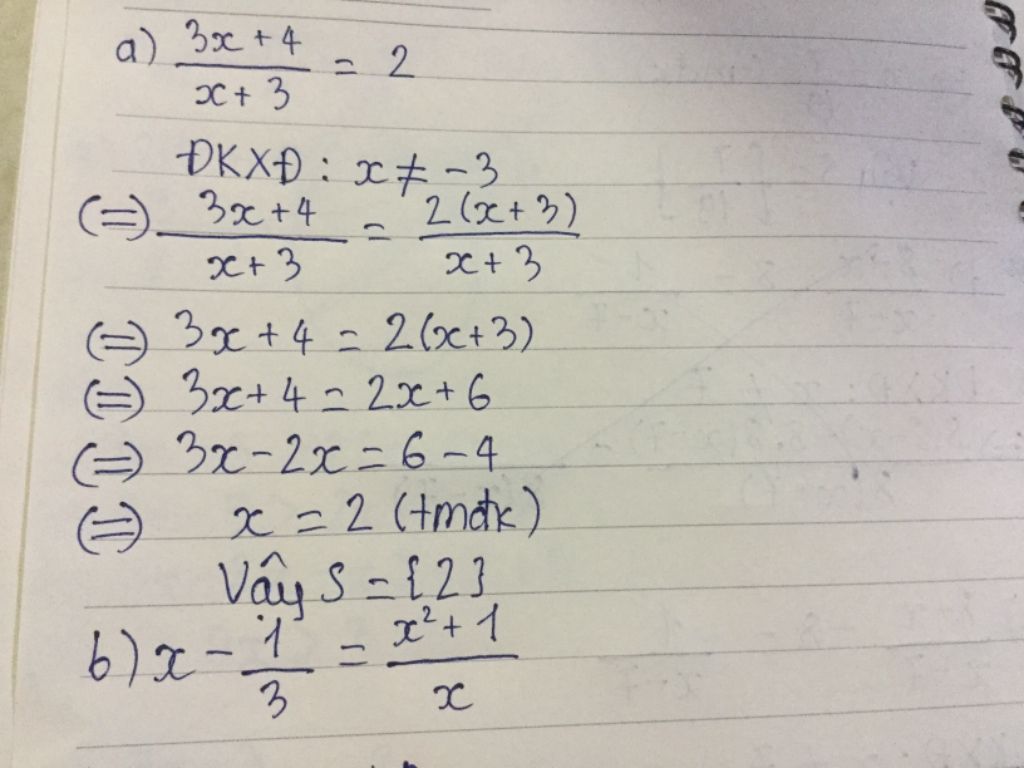 a) \frac{3x+4}{x+3} = 2
ĐKXĐ : x ≠ -3
(=) \frac{3x+4}{x+3} = \frac{2(x+3)}{x+3}
(=) 3x + 4 = 2(x+3)
(=) 3x + 4 = 2x + 6
(=) 3x - 2x = 6 - 4
(=) x = 2 (tmđk)
Vậy S = {2}
b) x - \frac{1}{3} = \frac{x² + 1}{x}